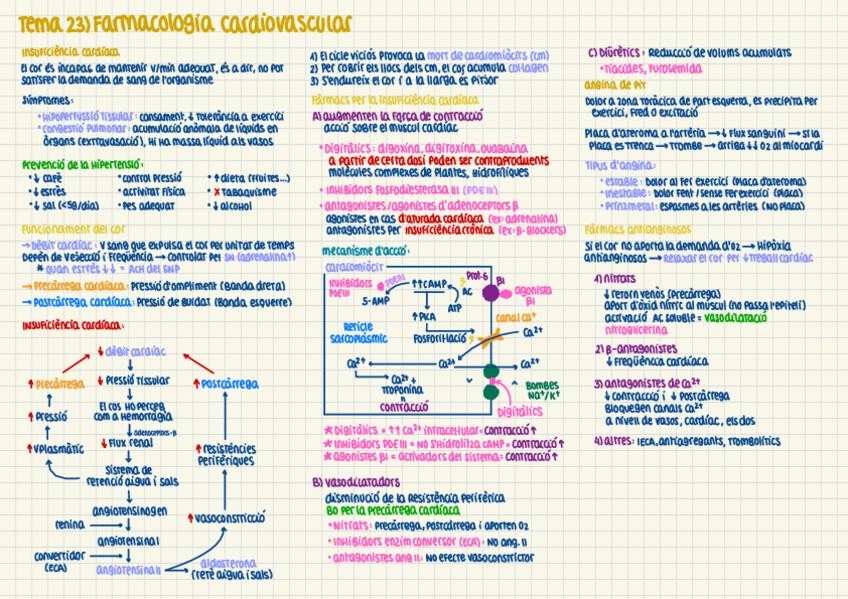 Tema 23) Farmacologia cardiovascular
Insuficiència cardíaca
El cor és incapaç de mantenir v/min adequat, és a dir, no pot
satisfer la demanda de sang de l'organisme
Símptomes:
• Hipoperfussió tissular: cansament, ↓ tolerància a exercici
• Congestió pulmonar: acumulació anòmala de líquids en
òrgans (extravasació), hi ha massa líquid als vasos
Prevenció de la hipertensió:
• ↓ café
• control pressió
• ↑ dieta (fruites...)
• ↓ estrès
• activitat física
• x Tabaquisme
• ↓ sal (<5g/dia)
• pes adequat
• ↓ alcohol
Funcionament del cor
→ Dèbit cardíac: V sang que expulsa el cor per unitat de temps
Depèn de vesecció i freqüència → controlat pel SN (adrenalina↑)
* quan estrés ↓↓ = ACH del SNP
→ Precàrrega cardíaca: Pressió d'ompliment (banda dreta)
→ Postcàrrega cardíaca: Pressió de buidat (banda esquerre)
Insuficiència cardíaca:
↓ dèbit cardíac
↑ Precàrrega
↓ Pressió tissular
↑ Postcàrrega
↑ Pressió
El cos ho percep
com a hemorràgia
adenoceptors-β
↑ Vplasmàtic
↓ Flux renal
↑ resistències
perifèriques
Sistema de
retenció aigua i sals
angiotensinogen
renina
↑ vasoconstricció
angiotensina I
convertidor
(ECA)
angiotensina II
aldosterona
(reté aigua i sals)
1) El cicle viciós provoca la mort de cardiomiòcits (cm)
2) Per cobrir els llocs dels cm, el cor acumula col·lagen
3) S'endureix el cor i a la llarga és pitjor
Fàrmacs per la insuficiència cardíaca
A) augmenten la força de contracció
acció sobre el muscul cardíac
• Digitàlics: digoxina, digitoxina, ouabaïna
a partir de certa dosi poden ser contraproduents
molècules complexes de plantes, hidrofíliques
• Inhibidors fosfodiesterasa III (PDEIII)
• antagonistes/agonistes d'adenoceptors β
agonistes en cas d'aturada cardíaca (ex: adrenalina)
antagonistes per insuficiència crònica (ex: β-blockers)
mecanisme d'acció:
caradiomiòcit
inhibidors
PDEIII
PDEIII
↑↑cAMP
5-AMP
AC
ATP
Prot-G
β1
agonista
β1
↑PKA
canal Ca²⁺
Fosforilació
Ca²⁺
Reticle
sarcoplàsmic
Ca²⁺
Ca²⁺
Ca²⁺
Ca²⁺ +
troponina
=
contracció
Bombes
Na⁺/K⁺
Digitàlics
* Digitàlics = ↑↑ Ca²⁺ intracel·lular = contracció↑
* Inhibidors PDE III = no s'hidrolitza cAMP = contracció↑
* agonistes β1 = activadors del sistema = contracció↑
B) vasodilatadors
disminució de la resistència perifèrica
Bo per la precàrrega cardíaca
• Nitrats: Precàrrega, postcàrrega i aporten O2
• Inhibidors enzim conversor (ECA): No ang. II
• antagonistes ang II: No efecte vasoconstrictor
C) Diürètics: Reducció de volums acumulats
• Tiacides, furosemida
angina de pit
Dolor a zona toràcica de part esquerra, es precipita per
exercici, fred o excitació
Placa d'ateroma a l'artèria → ↓ flux sanguini → si la
placa es trenca → trombe → arriba ↓↓ O2 al miocardi
Tipus d'angina:
• estable: Dolor al fer exercici (placa d'ateroma)
• inestable: Dolor fent/sense fer exercici (placa)
• Prinzmetal: espasmes a les artèries (no placa)
Fàrmacs antianginosos
Si el cor no aporta la demanda d'O2 → hipòxia
antianginosos → relaxar el cor per ↓treball cardíac
1) nitrats
↓ retorn venós (precàrrega)
aport d'òxid nítric al múscul (no passa l'epiteli)
activació AC soluble = vasodilatació
nitroglicerina
2) β-antagonistes
↓ freqüència cardíaca
3) antagonistes de Ca²⁺
↓ contracció i ↓ postcàrrega
bloquegen canals Ca²⁺
a nivell de vasos, cardíac, els dos
4) altres: IECA, antiagregants, trombolítics